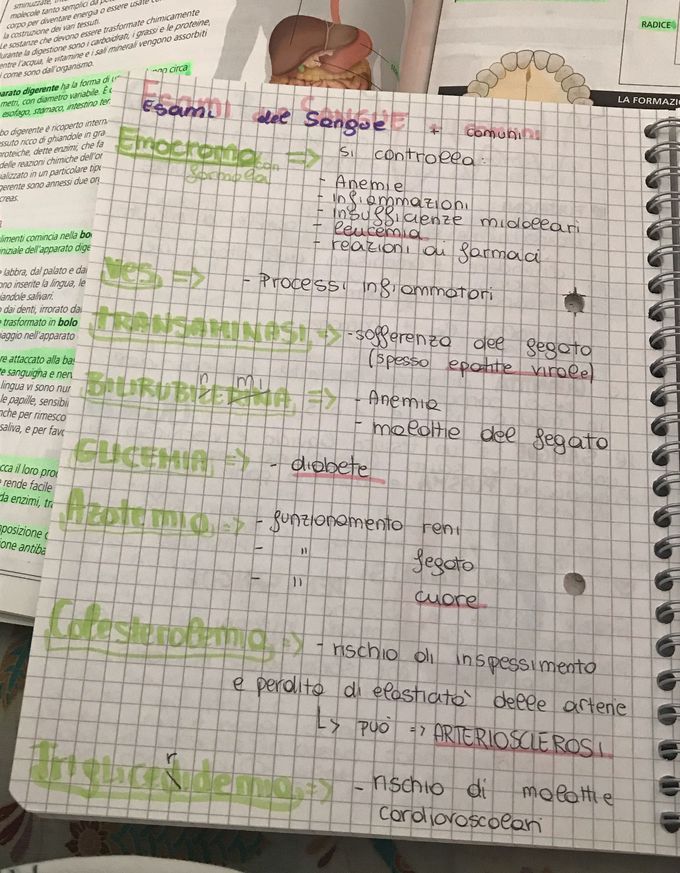 sminuzzate,
molecole tanto semplici da p
corpo per diventare energia o essere usate
la costruzione dei vari tessuti.
Le sostanze che devono essere trasformate chimicamente
urante la digestione sono i carboidrati, i grassi e le proteine,
entre l'acqua, le vitamine e i sali minerali vengono assorbiti
come sono dall'organismo.
arato digerente ha la forma di u
circa
metri, con diametro variabile. È
esofago, stomaco, intestino ten
bo digerente è ricoperto intern
ssuto ricco di ghiandole in gra
roteiche, dette enzimi, che fa
delle reazioni chimiche dell'or
ializzato in un particolare tipo
gerente sono annessi due or
creas.
limenti comincia nella bo
iniziale dell'apparato dige
labbra, dal palato e dai
ono inserite la lingua, le
iandole salivari.
dai denti, irrorato dal
trasformato in bolo
aggio nell'apparato
re attaccato alla bas
te sanguigna e nen
lingua vi sono nur
le papille, sensibili
nche per rimesco
saliva, e per favo
cca il loro pro
rende facile
da enzimi, tr
posizione
ione antiba
RADICE
LA FORMAZIO
Esami del Sangue + comuni
Emocromo con formola => si controlla:
- Anemie
- infiammazioni
- insufficienze midollari
- leucemia
- relazioni ai farmaci
Ves, => - Processi infiammatori
TRANSAMINASI, => - sofferenza del fegato
(spesso epatite virale)
BILIRUBINEMIA, => - Anemie
- malattie del fegato
GLICEMIA, => - diabete
Azotemia, => - funzionamento reni
- " fegato
- " cuore
Colesterolemia, => - rischio di inspessimento
e perdita di elasticità delle arterie
↳ può => ARTERIOSCLEROSI
Trigliceridemia, => - rischio di malattie
cardiovascolari